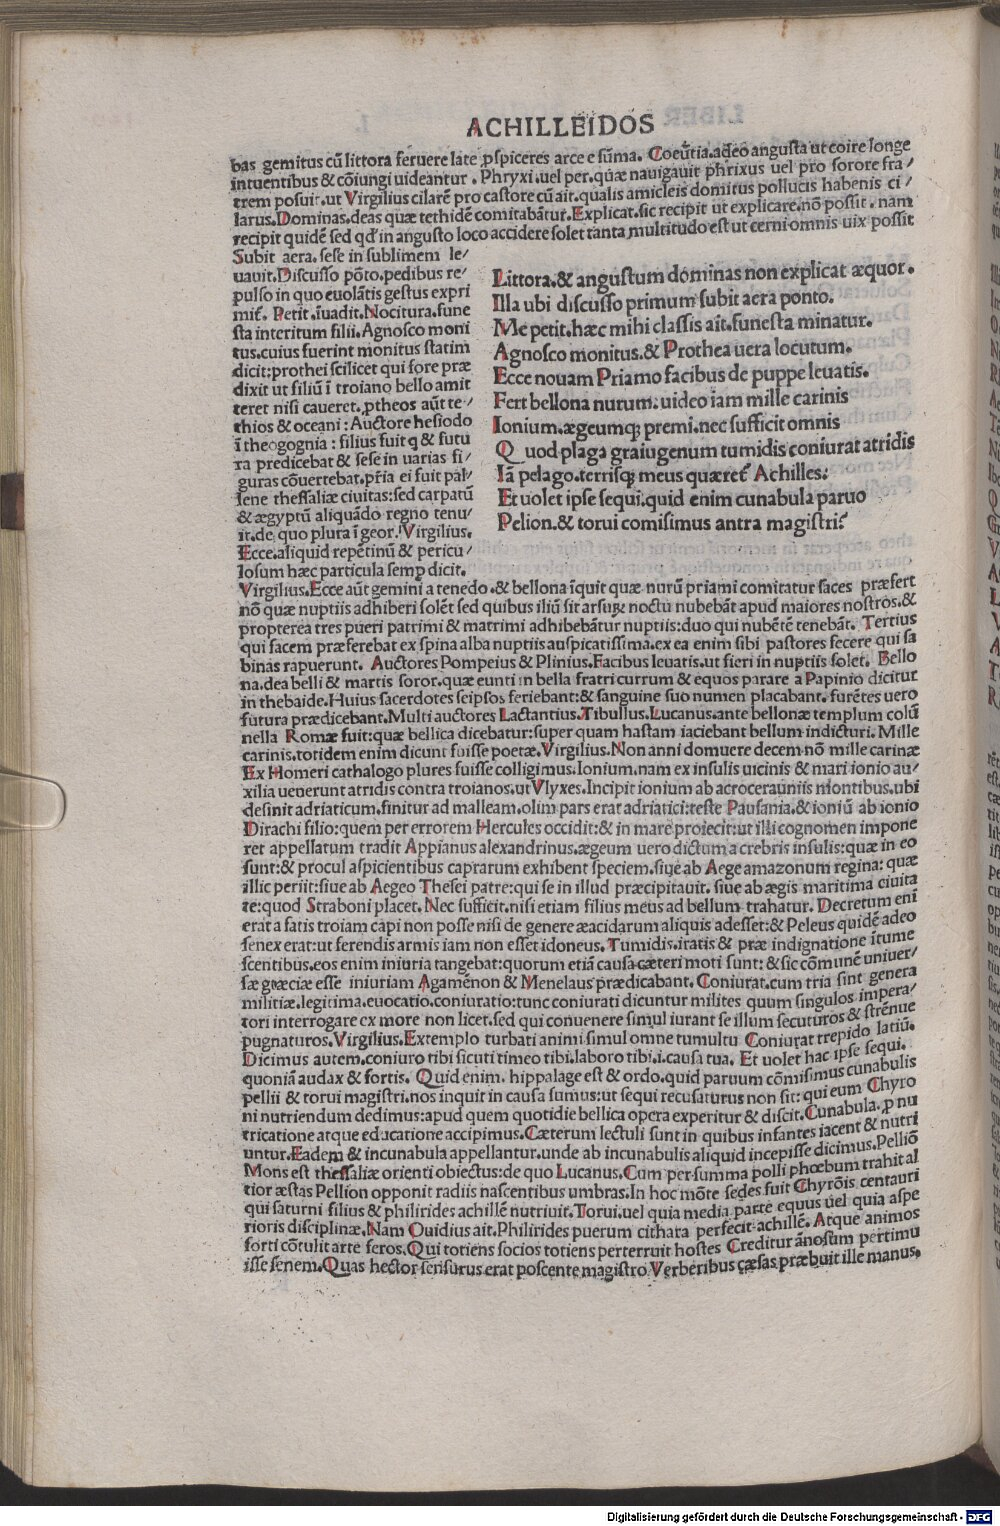 ACHILLEIDOS
bas gemitus cū littora feruere late ꝓspiceres arce e sūma. Coeūtia.adeo angusta ut coire longe
intuentibus & cōiungi uideantur. Phryxi.uel per.quæ nauigauit phrixus uel pro sorore fra/
trem posuit.ut Virgilius cilarē pro castore cū ait.qualis amicleis domitus pollucis habenis ci/
larus. Dominas.deas quæ tethidē comitabātur. Explicat.sic recipit ut explicare.nō possit. nam
recipit quidē sed qđ in angusto loco accidere solet tanta multitudo est ut cerni omnis uix possit
Subit aera.sese in sublimem le/
uauit. Discusso pōto.pedibus re/
pulso in quo euolātis gestus expri
mit. Petit.iuadit. Nocitura.fune
sta interitum filii. Agnosco moni
tus.cuius fuerint monitus statim
dicit:prothei scilicet qui fore præ
dixit ut filiū ī troiano bello amit
teret nisi caueret.ꝓtheos aūt te/
thios & oceani: Auctore hesiodo
ī theogognia: filius fuit q & futu
ra predicebat & sese in uarias fi/
guras cōuertebat.pr̄ia ei fuit pal/
lene thessaliæ ciuitas:sed carpatū
& ægyptū aliquādo regno tenu/
it.de quo plura ī geor. Virgilius.
Ecce.aliquid repētinū & pericu/
losum hæc particula semꝑ dicit.
Littora.& angustum dominas non explicat æquor.
Illa ubi discusso primum subit aera ponto.
Me petit.hæc mihi classis ait.funesta minatur.
Agnosco monitus.& Prothea uera locutum.
Ecce nouam Priamo facibus de puppe leuatis.
Fert bellona nurum:uideo iam mille carinis
Ionium.ægeumqꝫ premi.nec sufficit omnis
Quod plaga graiugenum tumidis coniurat atridis
Iā pelago.terrisqꝫ meus quæret̄ Achilles:
Et uolet ipse sequi.quid enim cunabula paruo
Pelion.& torui comisimus antra magistri?
Virgilius. Ecce aūt gemini a tenedo.& bellona īquit quæ nurū priami comitatur faces præfert
nō quæ nuptiis adhiberi solēt sed quibus iliū sit arsuꝝ noctu nubebāt apud maiores nostros.&
propterea tres pueri patrimi & matrimi adhibebātur nuptiis:duo qui nubētē tenebāt. Tertius
qui facem præferebat ex spina alba nuptiis auspicatissima.ex ea enim sibi pastores fecere qui sa
binas rapuerunt. Auctores Pompeius & Plinius. Facibus leuatis.ut fieri in nuptiis solet. Bello
na.dea belli & martis soror.quæ eunti in bella fratri currum & equos parare a Papinio dicitur
in thebaide. Huius sacerdotes seipsos feriebant:& sanguine suo numen placabant. furētes uero
futura prædicebant. Multi auctores Lactantius. Tibullus. Lucanus.ante bellonæ templum colū
nella Romæ fuit:quæ bellica dicebatur:super quam hastam iaciebant bellum indicturi. Mille
carinis.totidem enim dicunt fuisse poetæ. Virgilius. Non anni domuere decem nō mille carinæ
Ex Homeri cathalogo plures fuisse colligimus. Ionium.nam ex insulis uicinis & mari ionio au/
xilia uenerunt atridis contra troianos.ut Vlyxes. Incipit ionium ab acrocerauniis montibus.ubi
desinit adriaticum.finitur ad malleam.olim pars erat adriatici:teste Pausania.& ioniū ab ionio
Dirachi filio:quem per errorem Hercules occidit:& in mare proiecit:ut illi cognomen impone
ret appellatum tradit Appianus alexandrinus.ægeum uero dictum a crebris insulis:quæ in eo
sunt:& procul aspicientibus caprarum exhibent speciem.siue ab Aege amazonum regina: quæ
illic periit:siue ab Aegeo Thesei patre:qui se in illud præcipitauit. siue ab ægis maritima ciuita
te:quod Straboni placet. Nec sufficit.nisi etiam filius meus ad bellum trahatur. Decretum enī
erat a fatis troiam capi non posse nisi de genere æacidarum aliquis adesset:& Peleus quidē adeo
senex erat:ut ferendis armis iam non esset idoneus. Tumidis.iratis & præ indignatione ītume
scentibus.eos enim iniuria tangebat:quorum etiā causa cæteri moti sunt: & sic cōmunē uniuer/
sæ græciæ esse iniuriam Agamēnon & Menelaus prædicabant. Coniurat.cum tria sint genera
militiæ.legitima.euocatio.coniuratio:tunc coniurati dicuntur milites quum singulos impera/
tori interrogare ex more non licet.sed qui conuenere simul iurant se illum secuturos & strēnue
pugnaturos. Virgilius. Extemplo turbati animi simul omne tumultu Coniurat trepido latiū.
Dicimus autem.coniuro tibi sicuti timeo tibi.laboro tibi.i.causa tua. Et uolet hac ipse sequi.
quoniā audax & fortis. Quid enim. hippalage est & ordo.quid paruum cōmisimus cunabulis
pellii & torui magistri.nos inquit in causa sumus:ut sequi recusaturus non sit: qui eum Chyro
ni nutriendum dedimus:apud quem quotidie bellica opera experitur & discit. Cunabula.ꝓ nu
tricatione atque educatione accipimus. Cæterum lectuli sunt in quibus infantes iacent & nutri
untur. Eadem & incunabula appellantur.unde ab incunabulis aliquid incepisse dicimus. Pelliō
Mons est thessaliæ orienti obiectus:de quo Lucanus. Cum per summa polli phœbum trahit al
tior æstas Pellion opponit radiis nascentibus umbras. In hoc mōte sedes fuit Chyrōis centauri
qui saturni filius & philirides achillē nutriuit. Torui.uel quia media parte equus uel quia aspe
rioris disciplinæ. Nam Ouidius ait. Philirides puerum cithara perfecit achillē. Atque animos
forti cōtulit arte feros. Qui totiens socios totiens perterruit hostes Creditur ānosum pertimu
isse senem. Quas hector sensurus erat poscente magistro Verberibus çæsas præbuit ille manus.
Digitalisierung gefördert durch die Deutsche Forschungsgemeinschaft - DFG